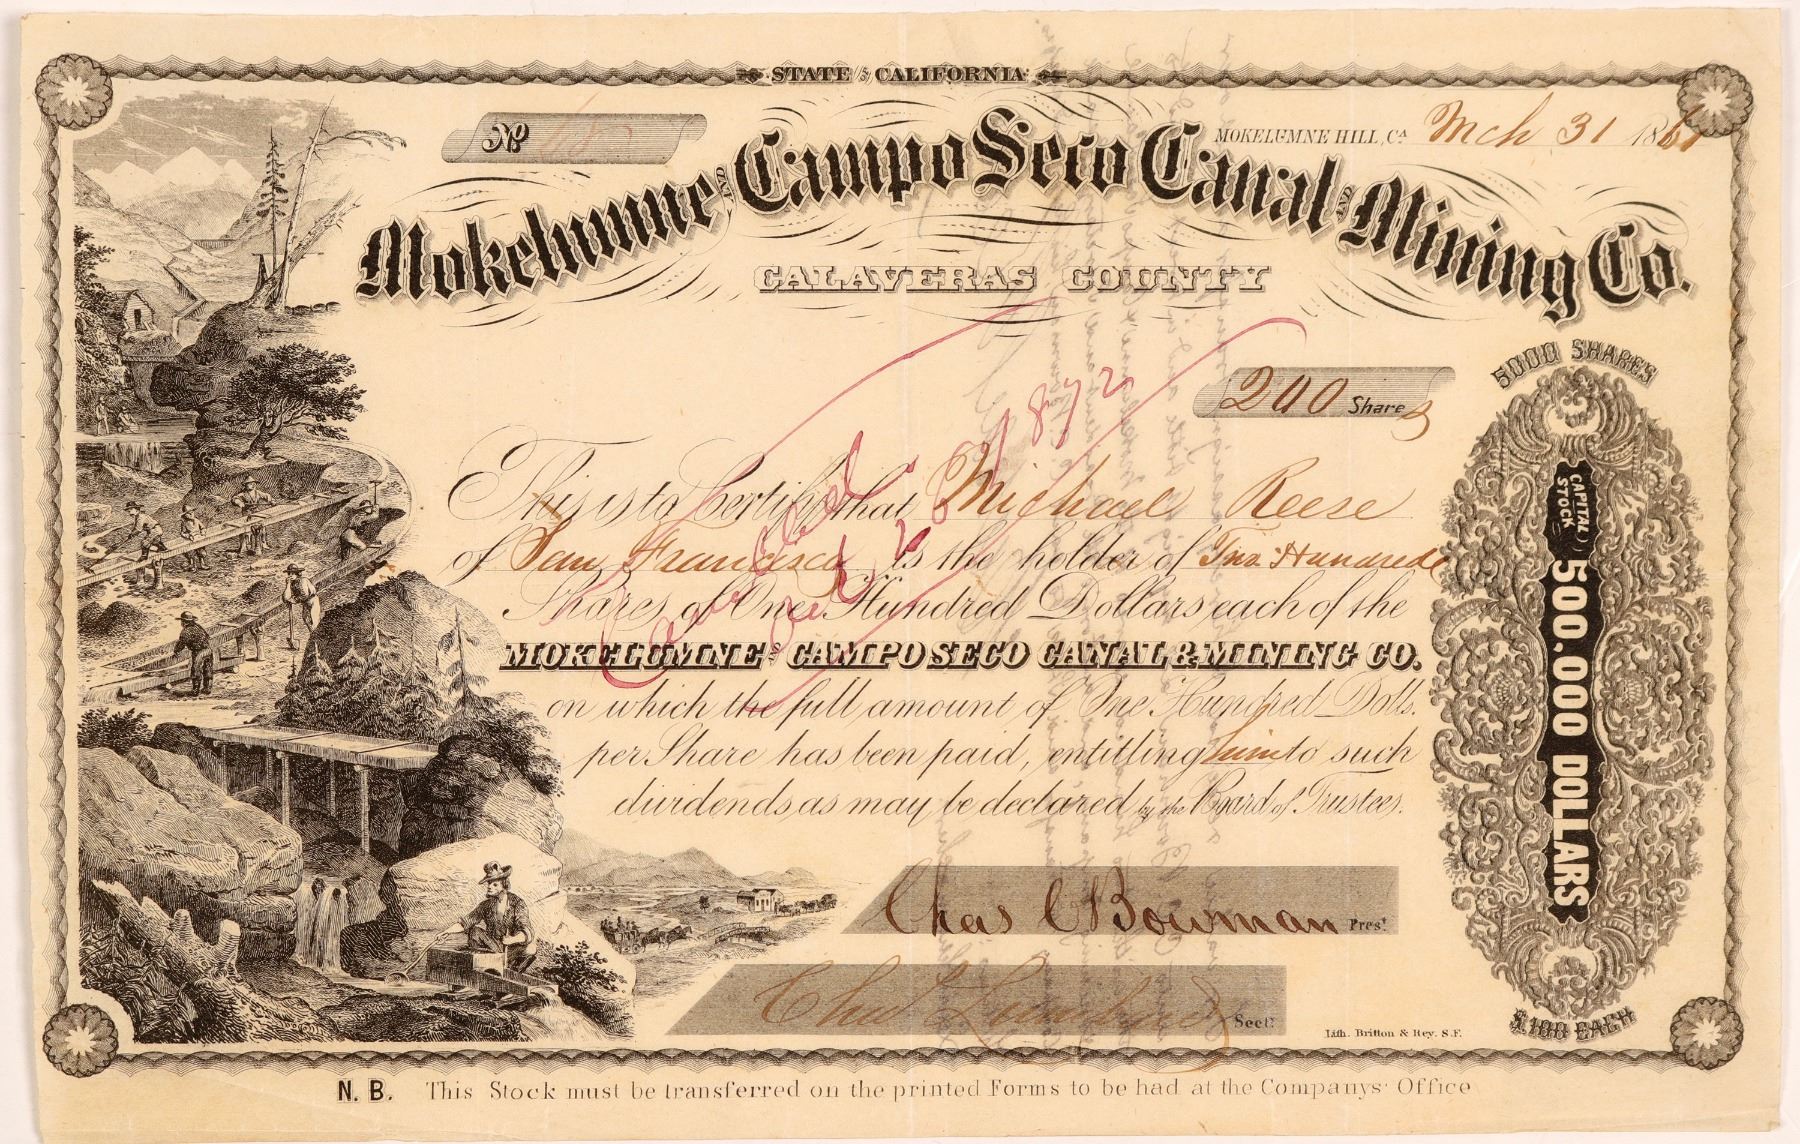 STATE OF CALIFORNIA
No
MOKELUMNE HILL, CA Mch 31 186
Mokelumne AND Campo Seco Canal AND Mining Co.
CALAVERAS COUNTY
200 Shares
5000 SHARES
CAPITAL STOCK 500.000 DOLLARS
$100 EACH
This is to Certify that Michael Reese
of San Francisco is the holder of Two Hundred
Shares of One Hundred Dollars each of the
MOKELUMNE AND CAMPO SECO CANAL & MINING CO.
on which the full amount of One Hundred Dolls.
per Share has been paid, entitling him to such
dividends as may be declared by the Board of Trustees.
Cancelled
1872
Chas C Bowman Prest
Sect.
Lith. Britton & Rey. S.F.
N.B. This Stock must be transferred on the printed Forms to be had at the Companys' Office